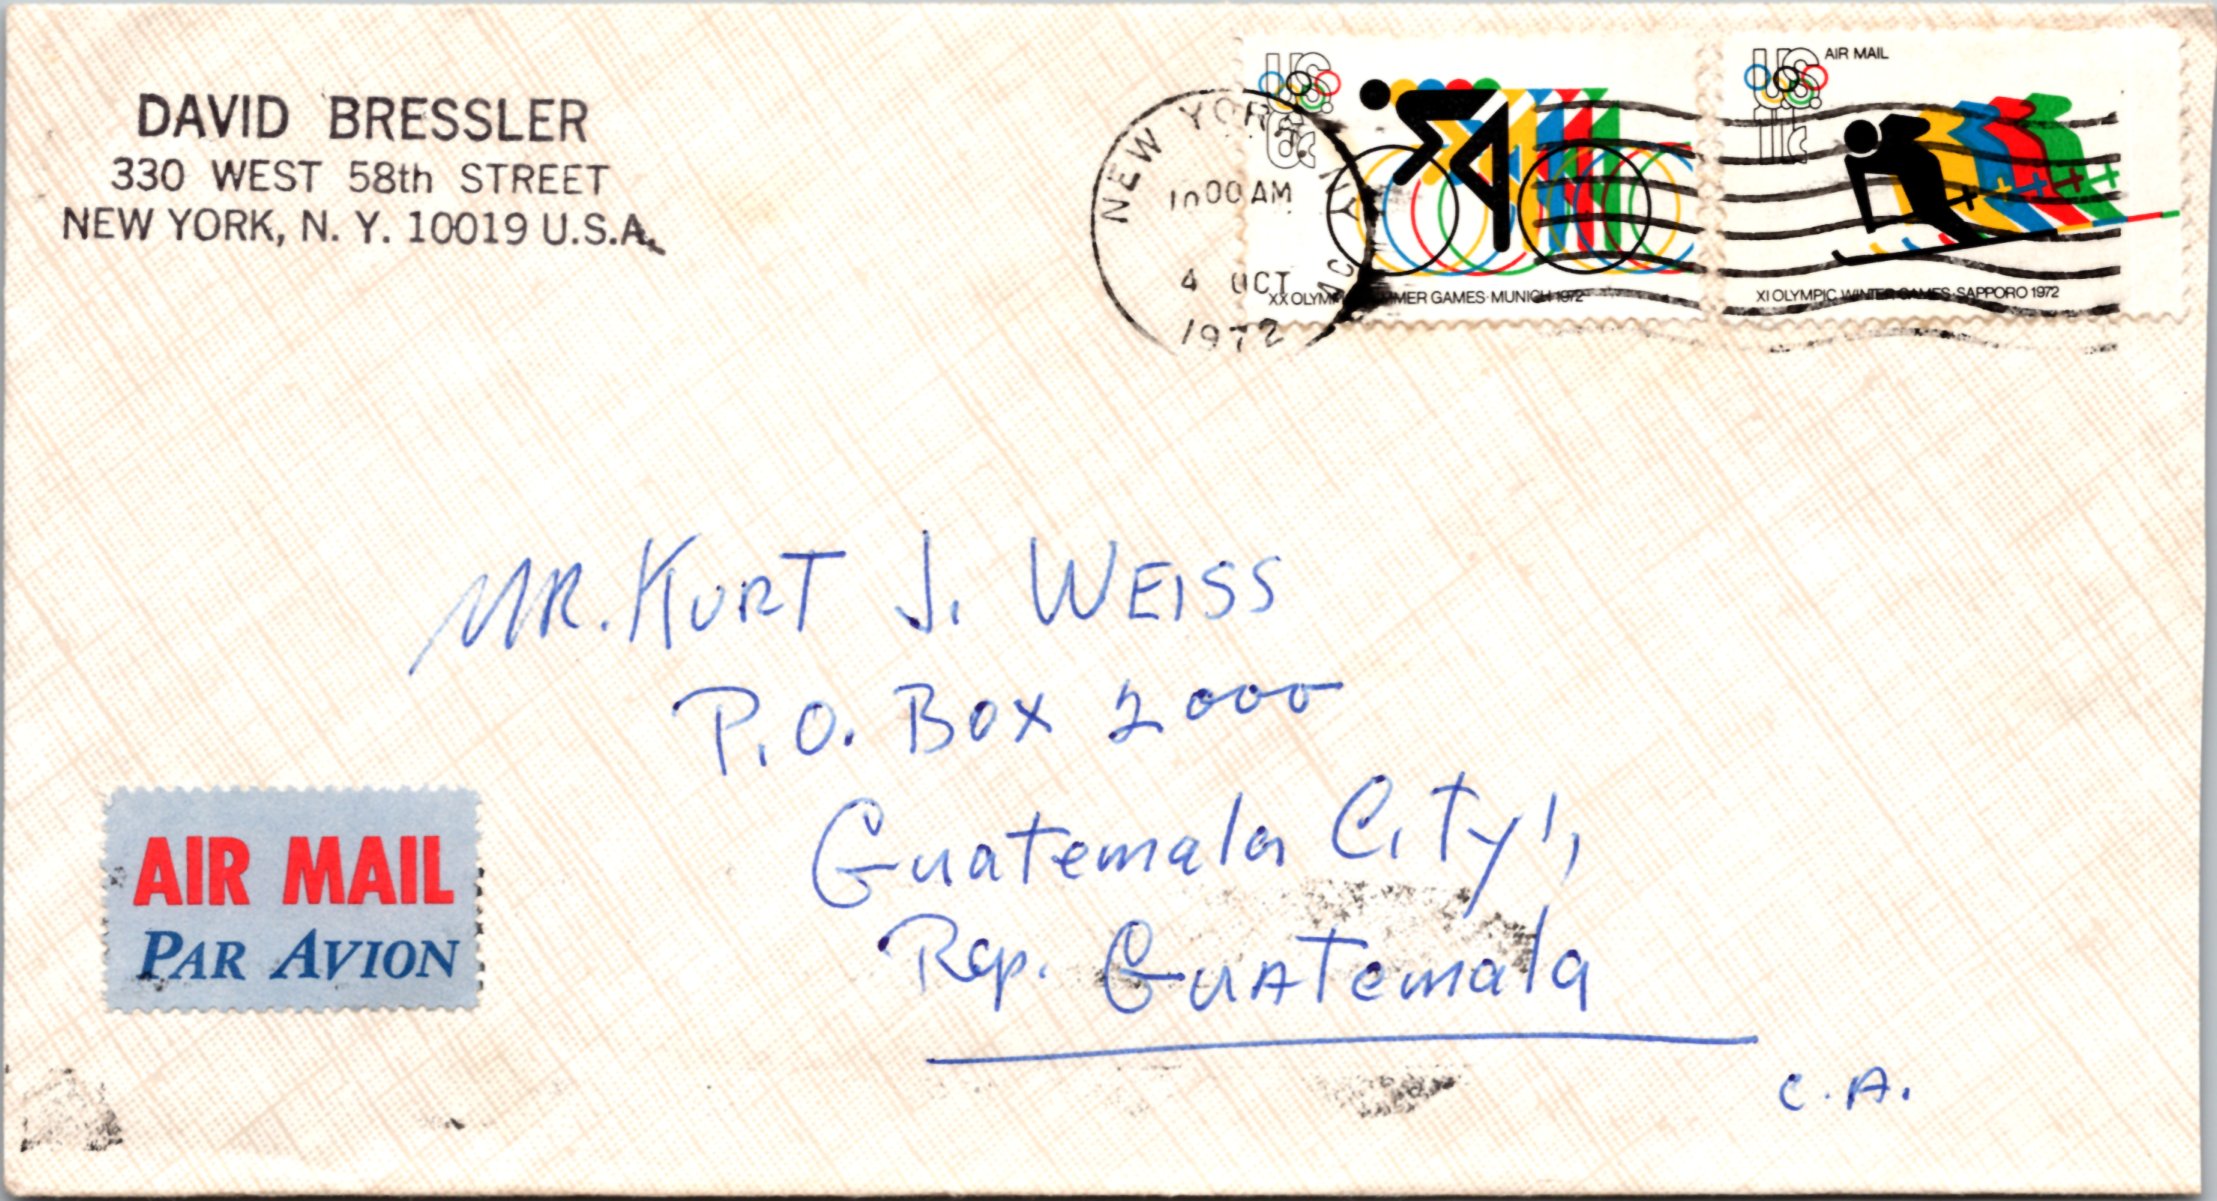 DAVID BRESSLER
330 WEST 58th STREET
NEW YORK, N. Y. 10019 U.S.A.
NEW YORK, N.Y.
10 00 AM
4 OCT
1972
U.S. 6c
XX OLYMPIC SUMMER GAMES·MUNICH 1972
U.S. 11c
AIR MAIL
XI OLYMPIC WINTER GAMES·SAPPORO 1972
MR. KURT J. WEISS
P.O. Box 2000
Guatemala City,
Rep. Guatemala
C.A.
AIR MAIL
PAR AVION